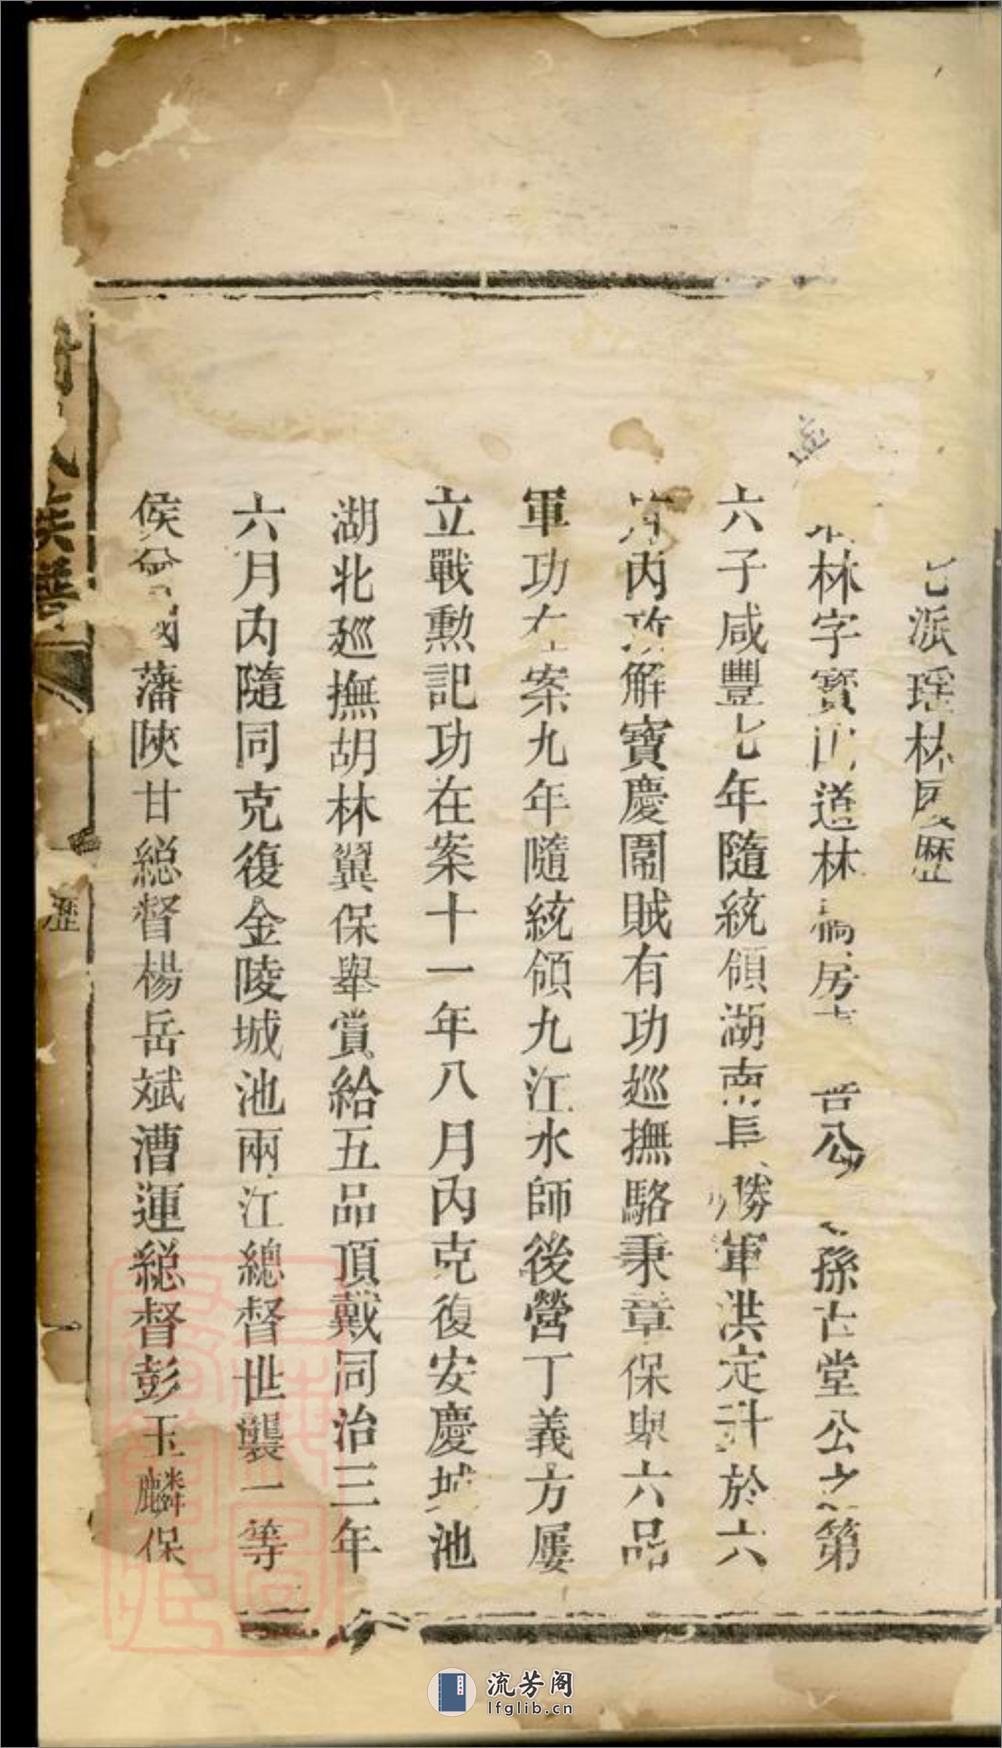 七派瑶林履歷
林字寶山道林 房 晋公 孫古堂公之第
六子咸豐七年隨統領湖南長勝軍洪定升於六
月內攻解寶慶圍賊有功巡撫駱秉章保舉六品
軍功在案九年隨統領九江水師後營丁義方屢
立戰勲記功在案十一年八月內克復安慶城池
湖北廵撫胡林翼保舉賞給五品頂戴同治三年
六月內隨同克復金陵城池兩江總督世襲一等
侯曾國藩陝甘総督楊岳斌漕運総督彭玉麟保
氏族譜
歷
流芳阁
lfglib.cn